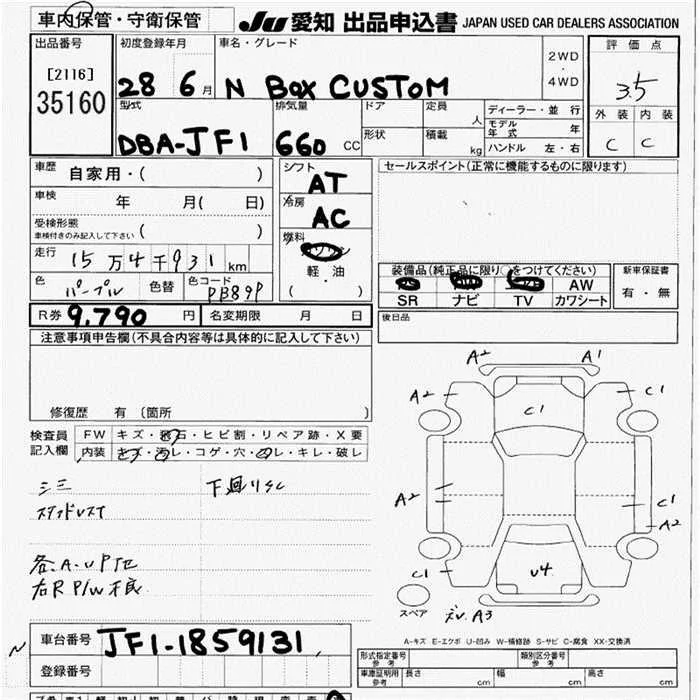 車内保管・守衛保管 JU 愛知 出品申込書 JAPAN USED CAR DEALERS ASSOCIATION
出品番号 初度登録年月 車名・グレード 評価点
[2116] 2WD
・
35160 28 6月 N Box CUSTOM 4WD 3.5
型式 排気量 ドア 定員 人 ディーラー・並行 外装 内装
モデル年式 年
DBA-JF1 660 CC 形状 積載 kg ハンドル 左・右 C C
車歴 自家用・( ) シフト AT セールスポイント(正常に機能するものに限ります)
車検 年 月( 日) 冷房 AC
受検形態
車検付きのみ記入して下さい ( ) 燃料
走行 15万4千931km 軽・油 装備品(純正品に限り○をつけてください) 新車保証書
( ・ ) AW 有・無
色 パープル 色替 色コード PB89P SR ナビ TV カワシート
R券 9,790円 名変期限 月 日 後日品
注意事項申告欄(不具合内容等は具体的に記入して下さい)
A2 A1
A2 C1 C1
修復歴 有 〔箇所 〕
検査員 FW キズ・飛石・ヒビ割・リペア跡・X要
記入欄 内装 キズ・汚レ・コゲ・穴・スレ・キレ・破レ
下廻りSC
A2 C1
A2
各A.UP他
右R P/W不良 C1 U4
スペア A3
車台番号 JF1-1859131 A-キズ E-エクボ U-凹み W-補修跡 S-サビ C-腐食 XX-交換済
登録番号 形式指定番号 参考 類別区分番号 参考
車庫証明用 参考 長さ cm 幅 cm 高さ cm